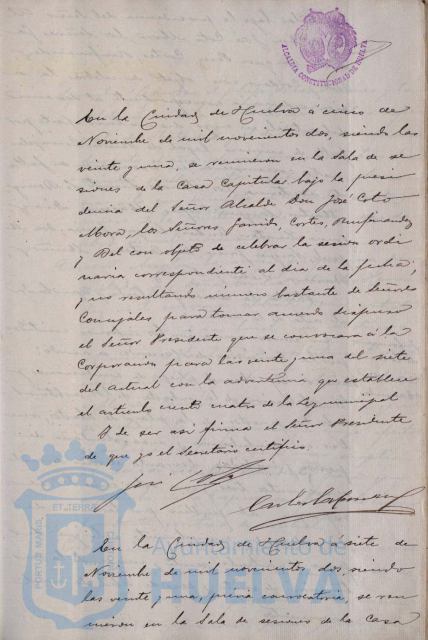 ALCALDIA CONSTITUCIONAL DE HUELVA
En la Ciudad de Huelva á cinco de
Noviembre de mil novecientos dos, siendo las
veinte y una, se reunieron en la Sala de se
siones de la Casa Capitular bajo la presi
dencia del Señor Alcalde Don José Coto
Mora, los Señores Garrido, Cortés,
y Bel con objeto de celebrar la sesion ordi
naria correspondiente al dia de la fecha;
y no resultando número bastante de Señores
Concejales para tomar acuerdo dispuso
el Señor Presidente que se convocara á la
Corporacion para las veinte y una del siete
del actual con la advertencia que establece
el articulo ciento cuatro de la Ley municipal
Y de ser asi firma el Señor Presidente
de que yo el Secretario certifico
José Coto
En la Ciudad de Huelva á siete de
Noviembre de mil novecientos dos siendo
las veinte y una, previa convocatoria, se reu
nieron en la Sala de sesiones de la Casa
PORTUS MARIS ET TERRAE
Ayuntamiento de
HUELVA